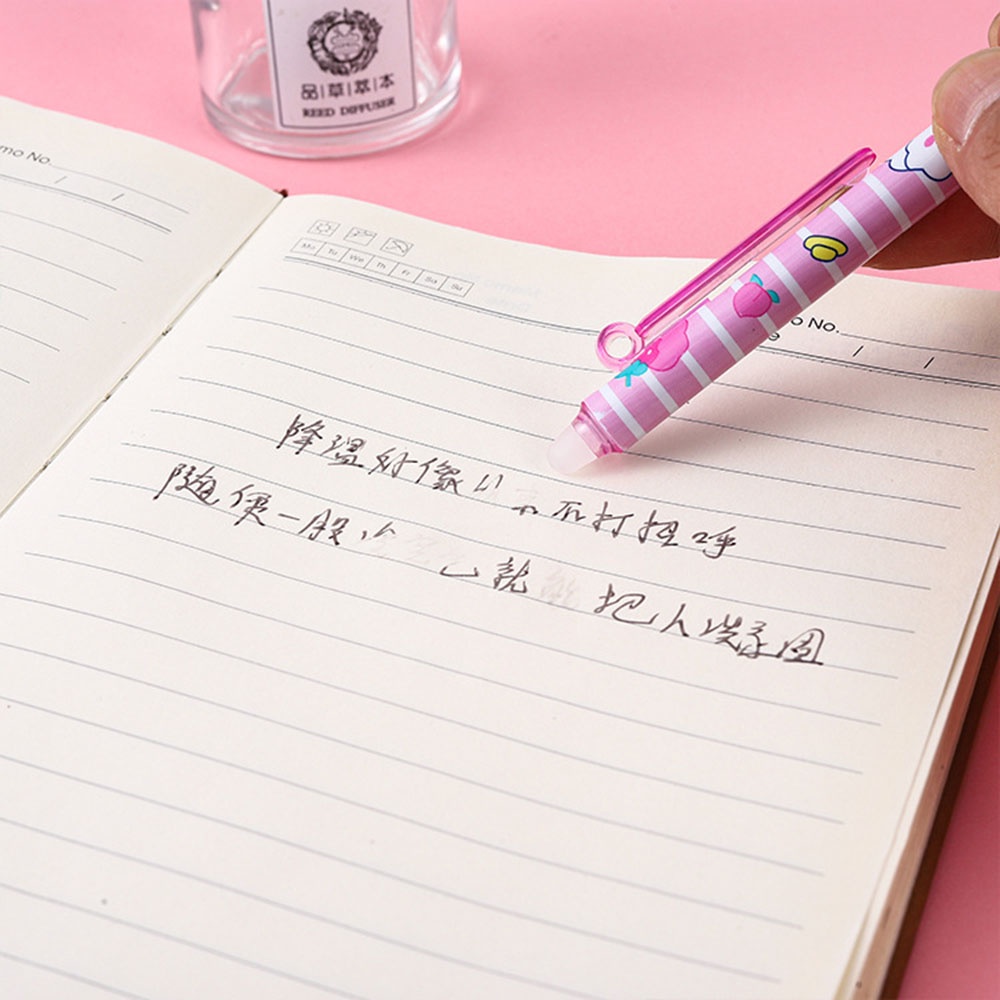 品|草|萃|本
REED DIFFUSER
mo No.
/ /
Mo Tu We Th Fr Sa Su
o No.
e / /
降温好像从 不打招呼
随便一股冷 就 把人